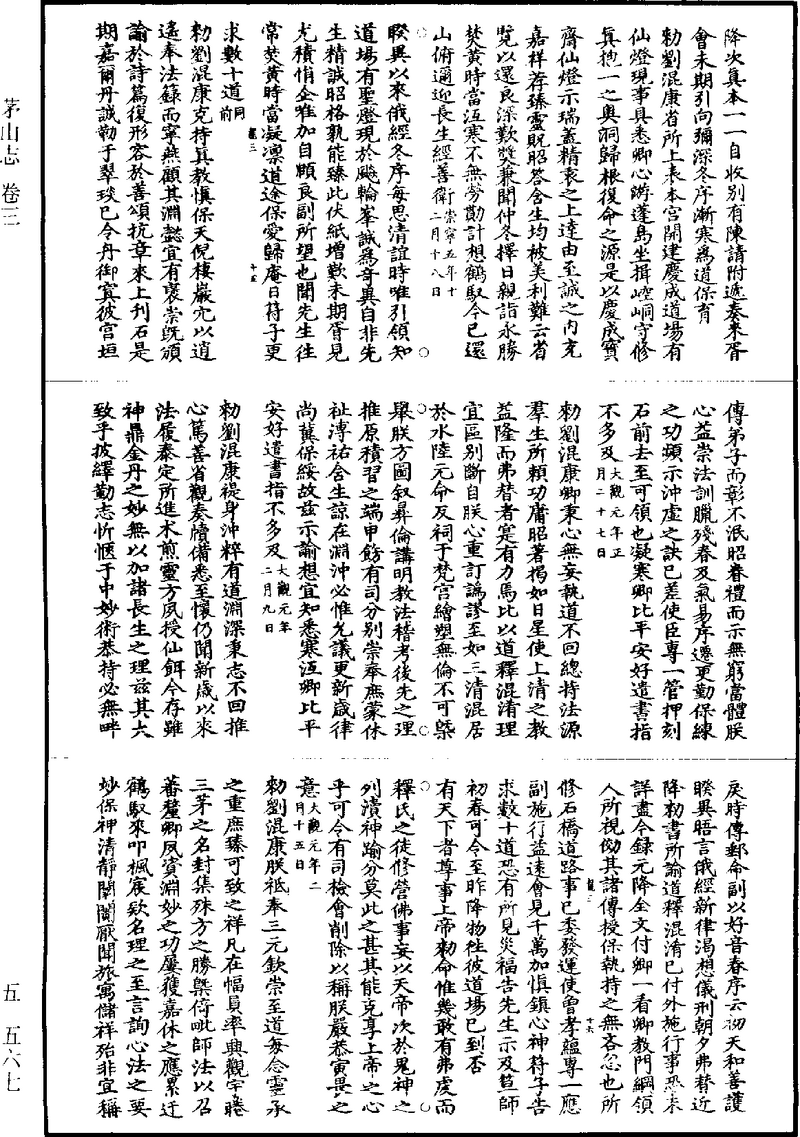 茅山志 卷三
五 五六七
降次真本一一自收別有陳請附遞奏來胥
會未期引向彌深冬序漸寒為道保育
勑劉混康省所上表本宮開建慶成道場有
仙燈現事具悉卿心游蓬島坐揖崆峒守修
真抱一之奧洞歸根復命之源是以慶成寶
齋仙燈示瑞蓋精衷之上達由至誠之內充
嘉祥荐臻靈貺昭答含生均被美利難云省
覽以還良深歎奬兼聞仲冬擇日親詣永勝
焚黃時當沍寒不無勞勩計想鶴馭今已還
山俯邇迎長生經善衛崇寧五年十二月十八日
睽異以來俄經冬序每思清誼時唯引領知
道場有聖燈現於飈輪峯誠為奇異自非先
生精誠昭格孰能臻此伏紙增歎未期胥見
尤積悁企惟加自頤良副所望也聞先生往
常焚黃時當凝凜道途保愛歸庵日符子更
求數十道同前
龍三
十五
勑劉混康克持真教慎保天倪棲巖穴以逍
遙奉法籙而寧無顧其淵懿宜有褒崇既頒
諭於詩篇復形容於善頌抗章來上刊石是
期嘉爾丹誠勒于翠琰已令丹御寘彼宮垣
傳弟子而彰不泯昭眷禮而示無窮當體朕
心益崇法訓臘殘春及氣易序遷更勤保練
之功頻示沖虛之訣已差使臣專一管押刻
石前去至可領也凝寒卿比平安好遣書指
不多及大觀元年正月二十七日
勑劉混康卿秉心無妄執道不回總持法源
羣生所賴功庸昭著揭如日星使上清之教
益隆而弗替者寔有力焉比以道釋混淆理
宜區別斷自朕心重訂譌謬至如三清混居
於水陸元命反祠于梵宮繪塑無倫不可槩
舉朕方圖叙彝倫講明教法稽考後先之理
推原積習之端甲飭有司分別崇奉庶蒙休
祉溥祐含生諒在淵沖必惟允議更新歲律
尚冀保綏故茲示諭想宜知悉寒沍卿比平
安好遣書指不多及大觀元年二月九日
勑劉混康禔身沖粹有道淵深秉志不回推
心篤善省觀奏牘備悉至懷仍聞新歲以來
法履泰定所進术煎靈方夙授仙餌今存雖
神鼎金丹之妙無以加諸長生之理茲其大
致乎披繹勤志忻愜于中妙術恭持必無畔
戾時傳郵命副以好音春序云初天和善護
睽異晤言俄經新律渴想儀刑朝夕弗替近
降勑書所諭道釋混淆已付外施行事恐未
詳盡今錄元降全文付卿一看卿教門綱領
人所視傚其諸傳授保執持之無吝忽也所
龍三
十六
修石橋道路事已委發運使曾孝蘊專一應
副施行益遠會見千萬加慎鎮心神符子告
求數十道恐有所見災福告先生示及筥師
初春可令至昨降物在彼道場已到否
有天下者尊事上帝勑命惟幾敢有弗虔而
釋氏之徒修營佛事妄以天帝次於鬼神之
列瀆神踰分莫此之甚其能克享上帝之心
乎可令有司檢會削除以稱朕嚴恭寅畏之
意大觀元年二月十五日
勑劉混康朕祗奉三元欽崇至道每念靈承
之重庶臻可致之祥凡在幅員率典觀宇睠
三茅之名封集殊方之勝槩倚毗師法以召
蕃釐卿夙資淵妙之功屢獲嘉休之應累迂
鶴馭來叩楓宸欵名理之至言詢心法之要
妙保神清靜闤闠厭聞旅寓儲祥殆非宜稱